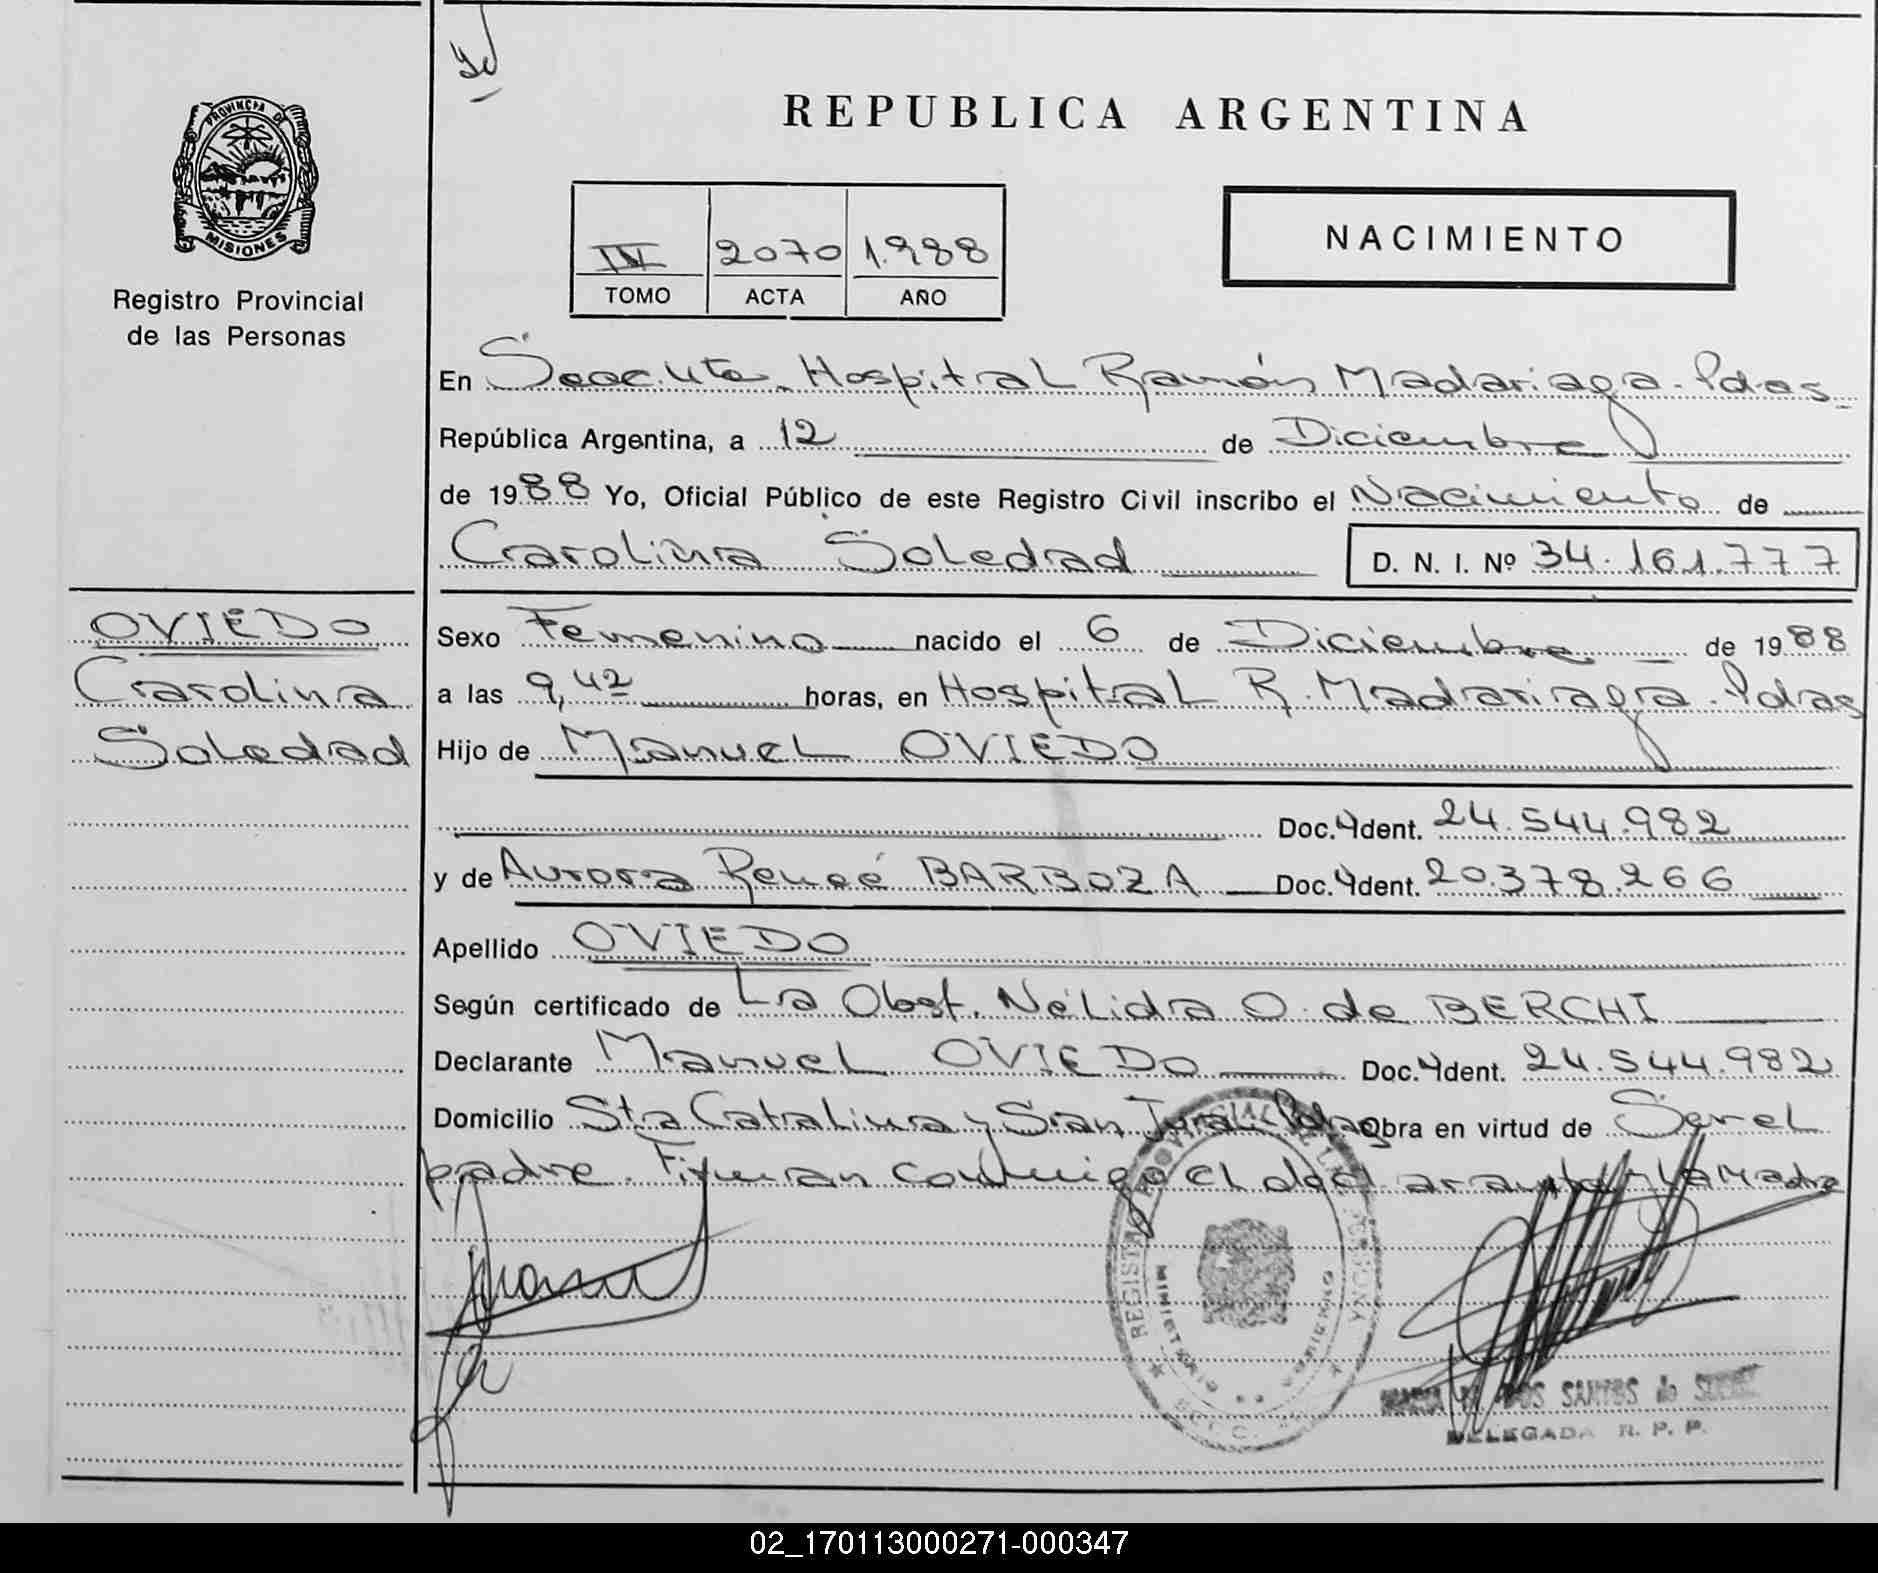 PROVINCIA DE
MISIONES
Registro Provincial
de las Personas
REPUBLICA ARGENTINA
IV 2070 1.988
TOMO ACTA AÑO
NACIMIENTO
En Secc. Hospital Ramón Madariaga. Pdas
República Argentina, a 12 de Diciembre
de 1988 Yo, Oficial Público de este Registro Civil inscribo el Nacimiento de
Carolina Soledad D. N. I. Nº 34.161.777
OVIEDO
Carolina
Soledad
Sexo Femenino nacido el 6 de Diciembre de 1988
a las 9,42 horas, en Hospital R. Madariaga. Pdas
Hijo de Manuel OVIEDO
Doc. Ident. 24.544.982
y de Aurora Reneé BARBOZA Doc. Ident. 20.378.266
Apellido OVIEDO
Según certificado de La Obst. Nélida O. de BERCHI
Declarante Manuel OVIEDO Doc. Ident. 24.544.982
Domicilio Sta Catalina y San Juan Pdas Obra en virtud de Ser el
padre. Firman conmigo el declarante y la Madre
DOS SANTOS de
DELEGADA R. P. P.
02_170113000271-000347